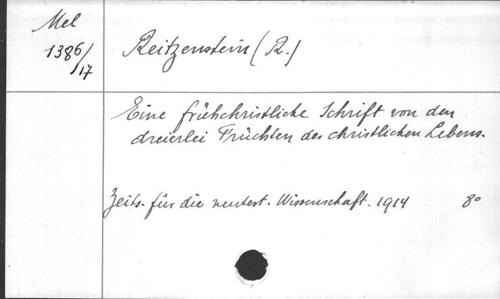 Mel
1386/17
Reitzenstein (R.)
Eine frühchristliche Schrift von den
dreierlei Früchten des christlichen Lebens.
Zeits. für die neutest. Wissenschaft. 1914 8°